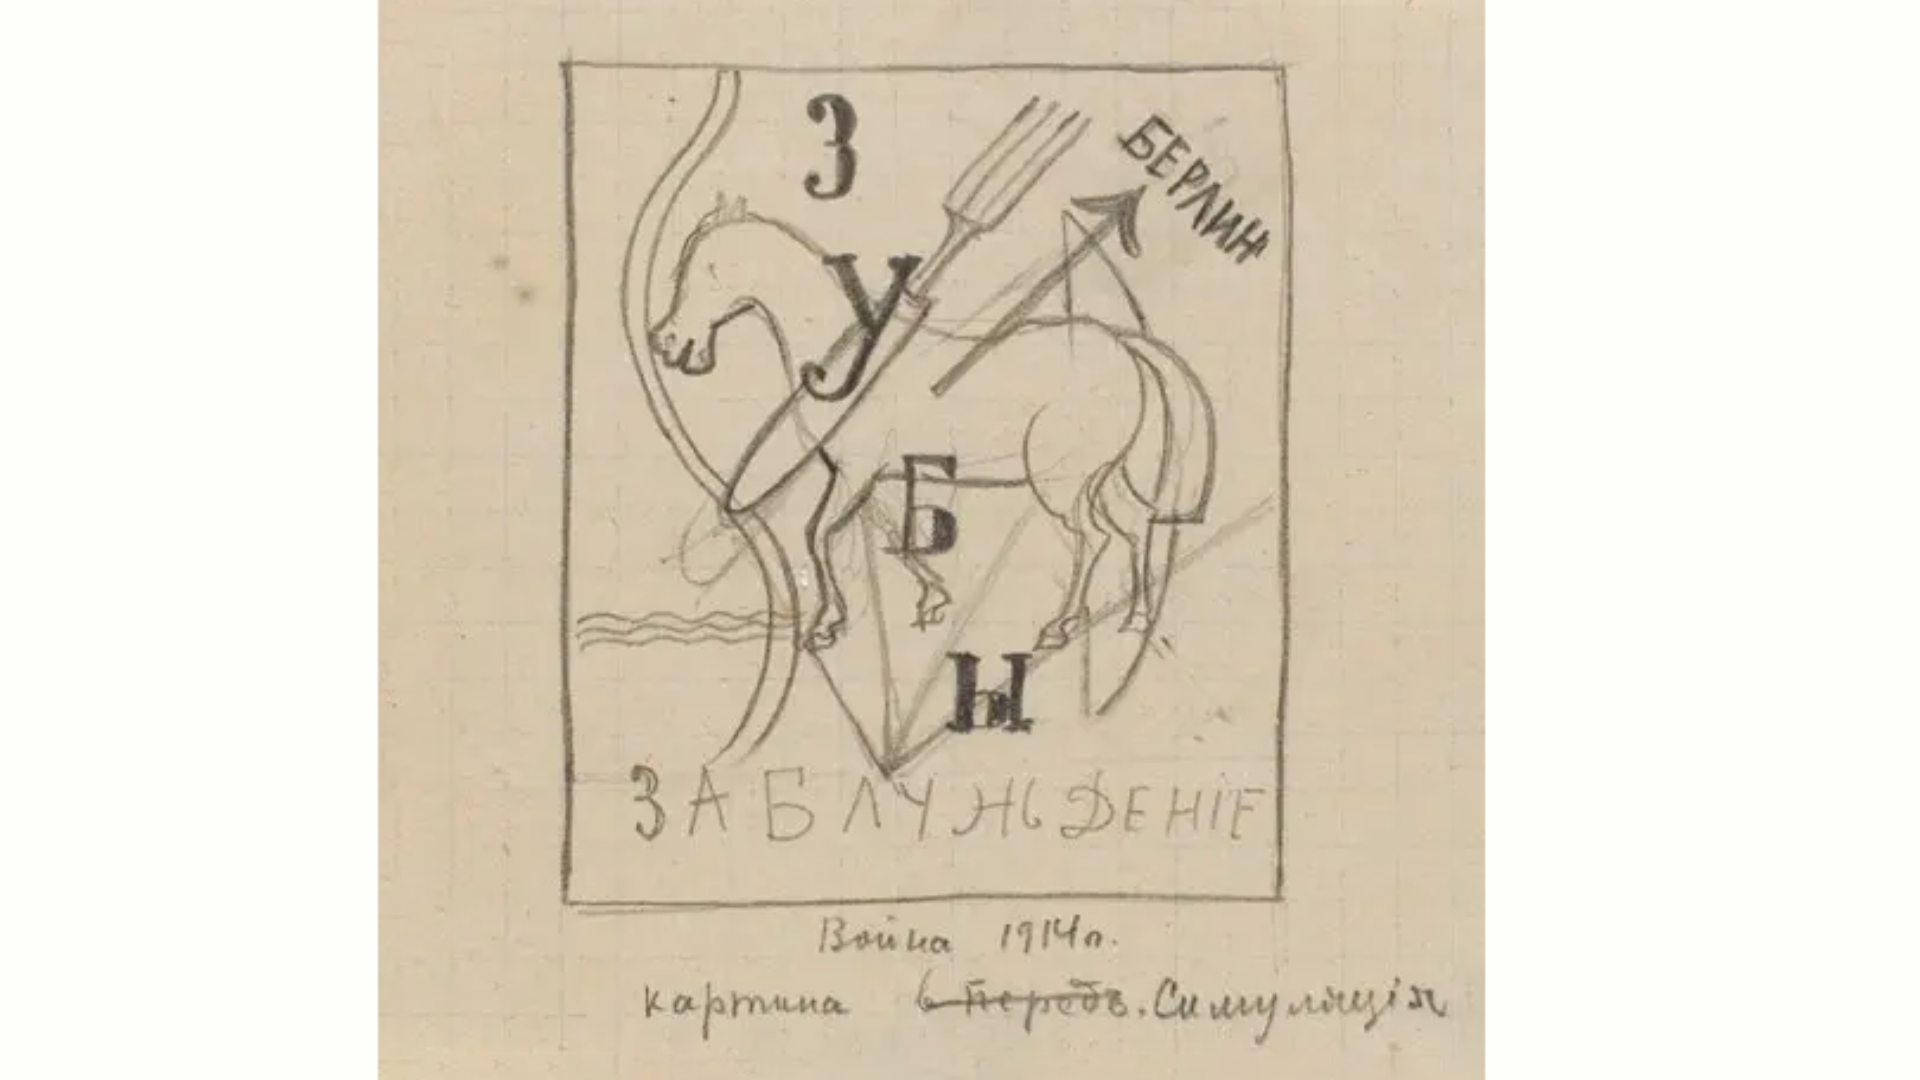 З
У
Б
Ы
БЕРЛИН
ЗАБЛУЖЬДЕНIЕ
Война 1914 г.
картина в перёдъ. Симуляцiя